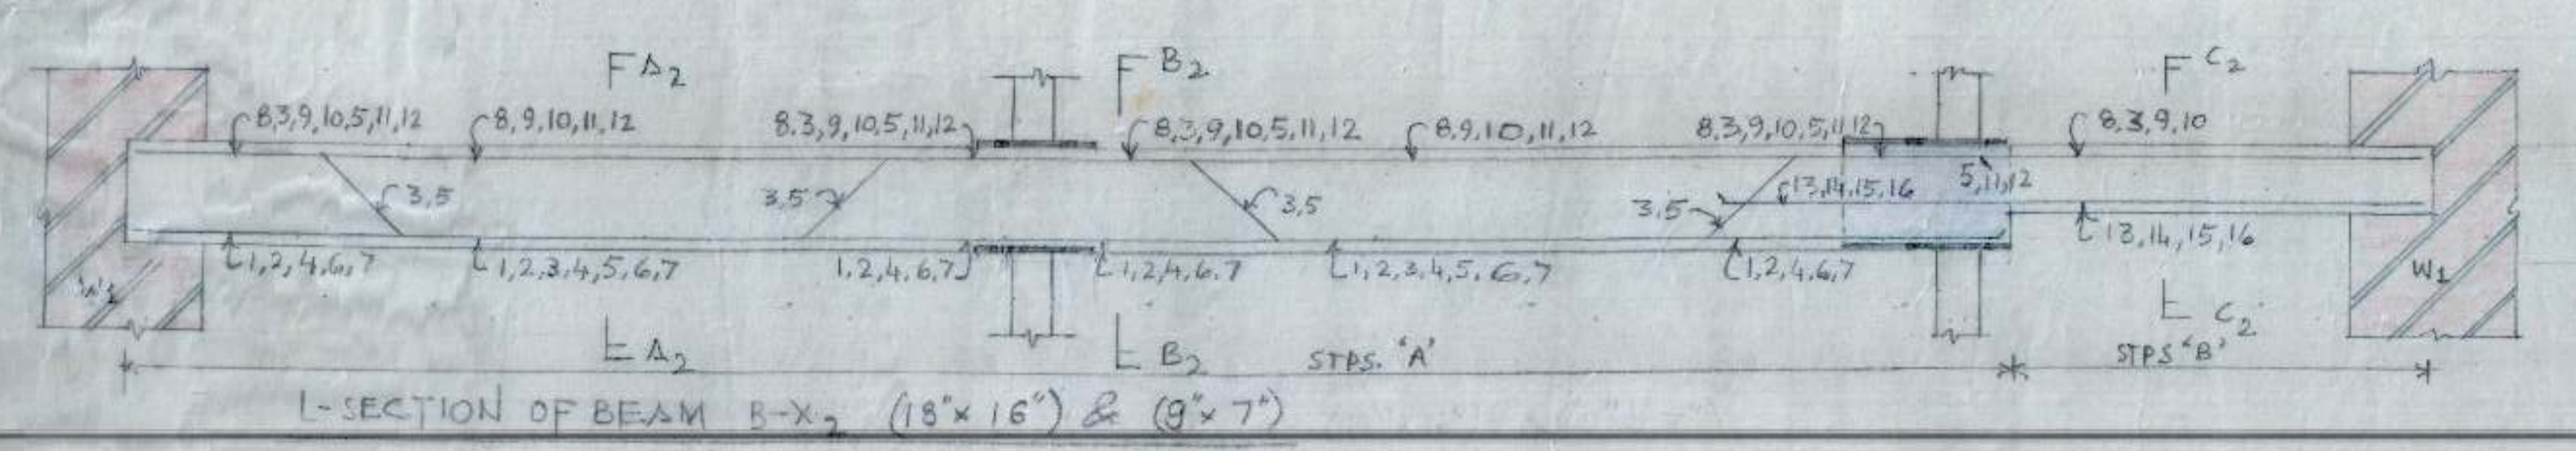 A2
B2
C2
8,3,9,10,5,11,12
8,9,10,11,12
8,3,9,10,5,11,12
8,3,9,10,5,11,12
8,9,10,11,12
8,3,9,10,5,11,12
8,3,9,10
3,5
3,5
3,5
3,5
13,14,15,16
5,11,12
1,2,4,6,7
1,2,3,4,5,6,7
1,2,4,6,7
1,2,4,6,7
1,2,3,4,5,6,7
1,2,4,6,7
13,14,15,16
W1
W1
A2
B2
STPS. 'A'
C2
STPS 'B'
L-SECTION OF BEAM B-X2 (18"x 16") & (9"x 7")